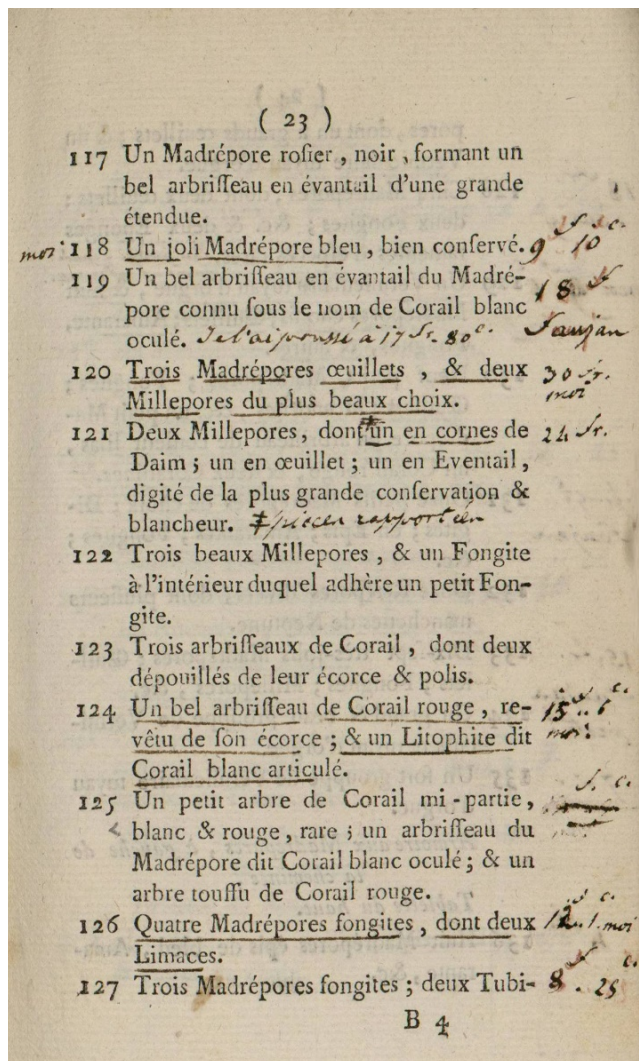 ( 23 )
117 Un Madrépore roſier , noir , formant un
bel arbriſſeau en évantail d'une grande
étendue.
f c.
moi 118 Un joli Madrépore bleu, bien conſervé. 9 10
119 Un bel arbriſſeau en évantail du Madré-
pore connu ſous le nom de Corail blanc 18 f
oculé. Je l'ai poussé à 17 fr. 80 c. Faujas
120 Trois Madrépores œuillets , & deux 30 fr.
Millepores du plus beaux choix. moi
121 Deux Millepores, dont un en cornes de 24 fr.
Daim ; un en œuillet ; un en Eventail,
digité de la plus grande conſervation &
blancheur.
122 Trois beaux Millepores , & un Fongite
à l'intérieur duquel adhère un petit Fon-
gite.
123 Trois arbriſſeaux de Corail , dont deux
dépouillés de leur écorce & polis.
f. c.
124 Un bel arbriſſeau de Corail rouge , re- 15
vêtu de ſon écorce ; & un Litophite dit moi
Corail blanc articulé.
f. c.
125 Un petit arbre de Corail mi-partie,
blanc & rouge, rare ; un arbriſſeau du
Madrépore dit Corail blanc oculé ; & un
arbre touffu de Corail rouge.
f c.
126 Quatre Madrépores fongites , dont deux 12. 1. moi
Limaces.
f c.
127 Trois Madrépores fongites ; deux Tubi- 8 . 25
B 4